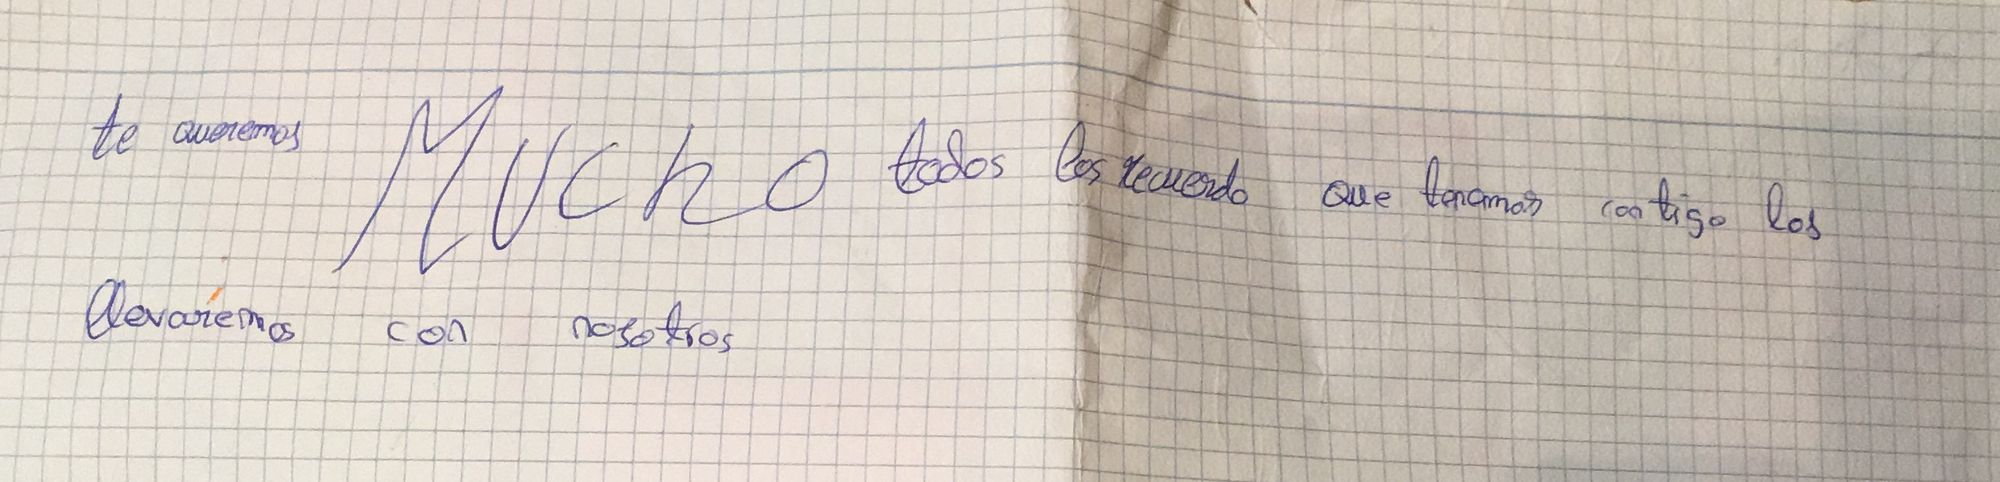 te queremos MUchO todos los recuerdo que tenemos contigo los
llevaremos con nosotros